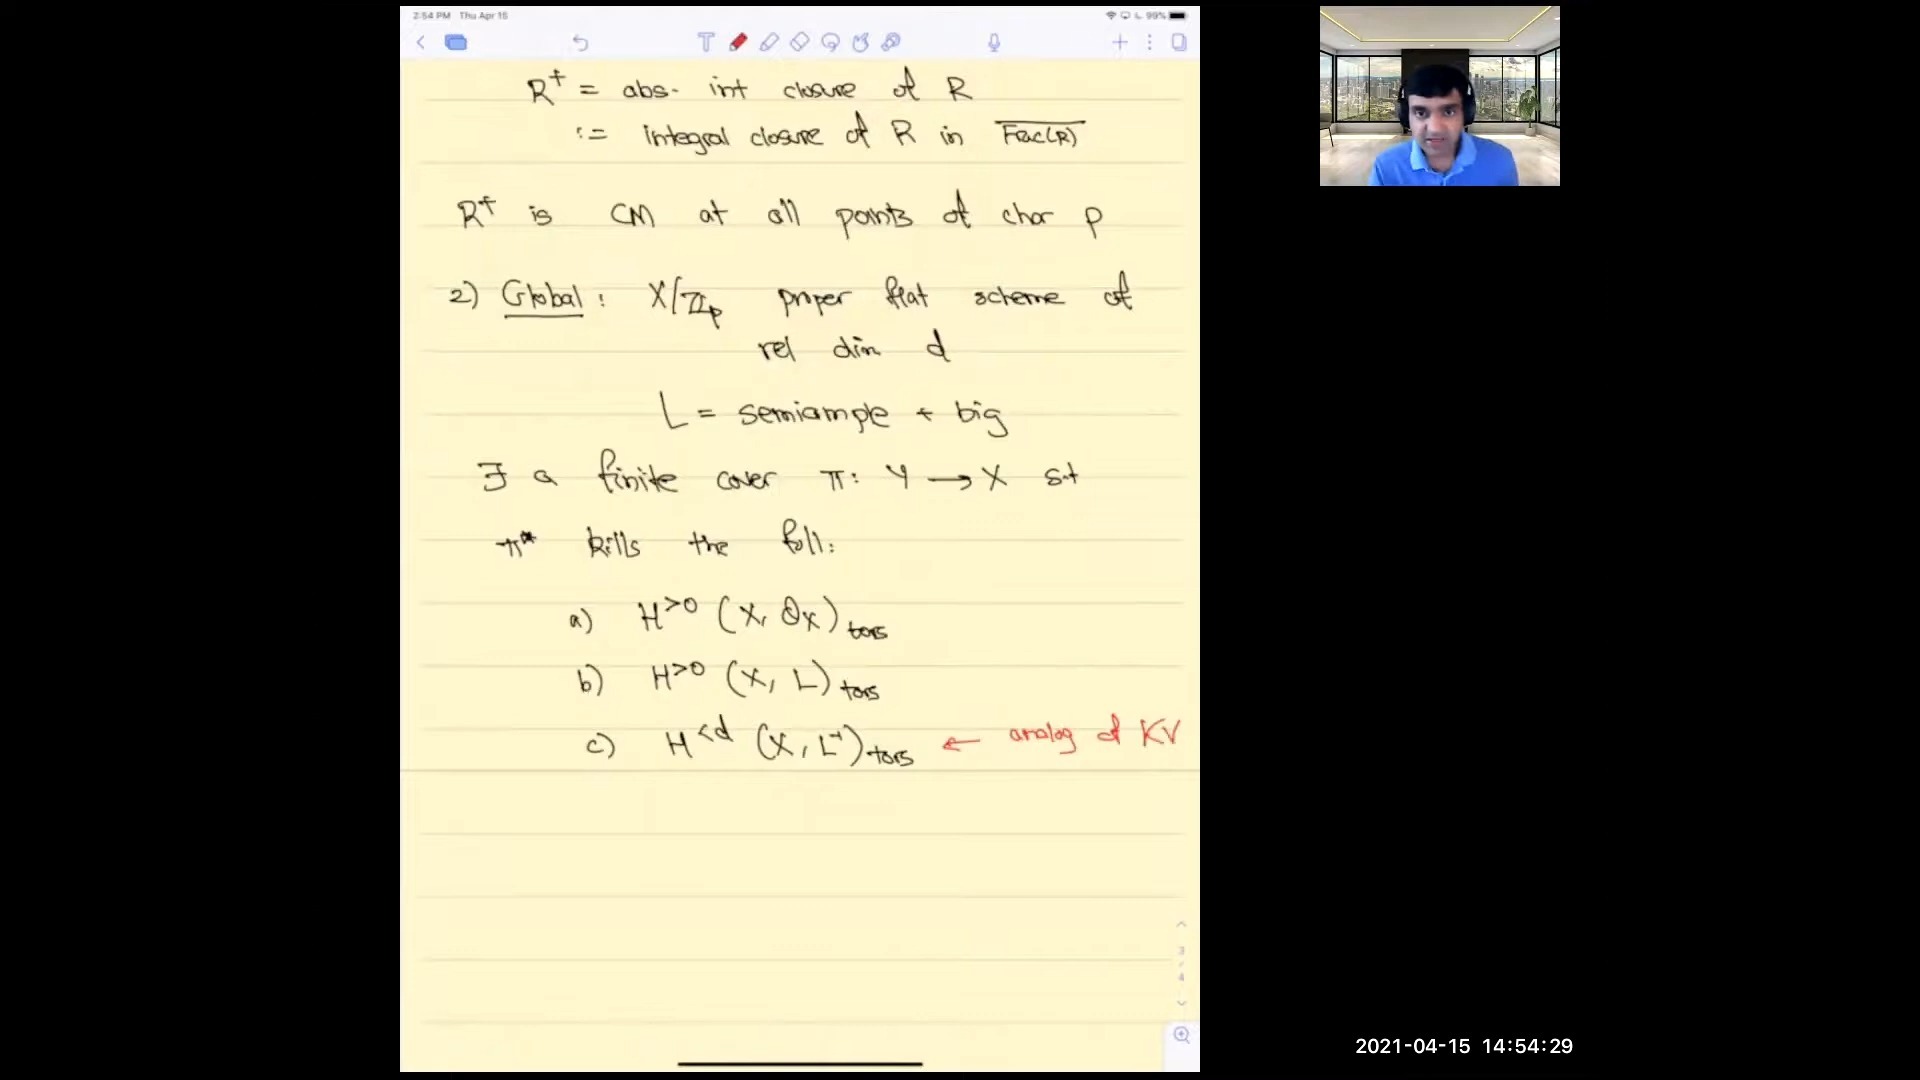 2:54 PM Thu Apr 15
99%
R⁺ = abs. int closure of R
:= integral closure of R in \overline{Frac(R)}
R⁺ is CM at all points of char p
2) Global : X/ℤp proper flat scheme of
rel dim d
L = semiample + big
∃ a finite cover π: Y → X s.t
π* kills the foll:
a) H^{>0} (X, O_X)_{tors}
b) H^{>0} (X, L)_{tors}
c) H^{<d} (X, L^{-1})_{tors} ← analog of KV
3
/
4
2021-04-15 14:54:29